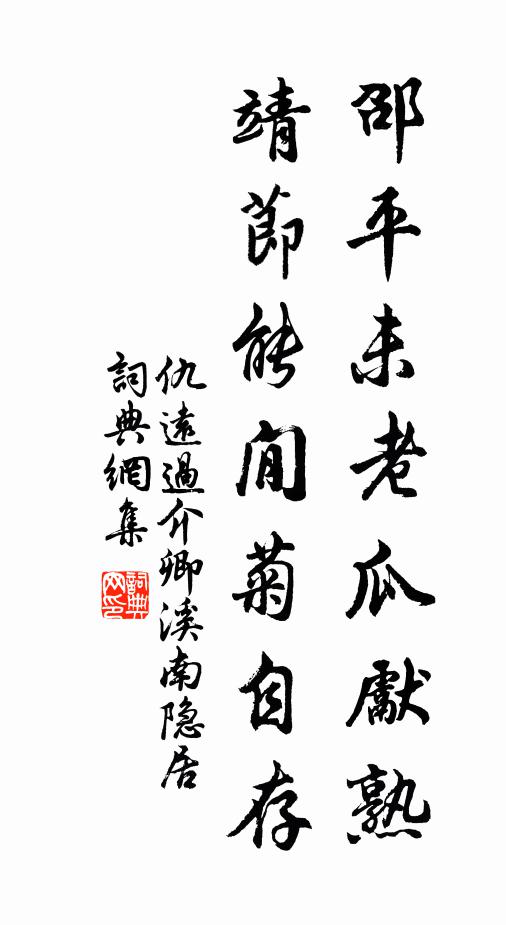 邵平未老瓜獻熟
靖節能閒菊自存
仇遠過介卿溪南隐居
詞典網集
詞典网印